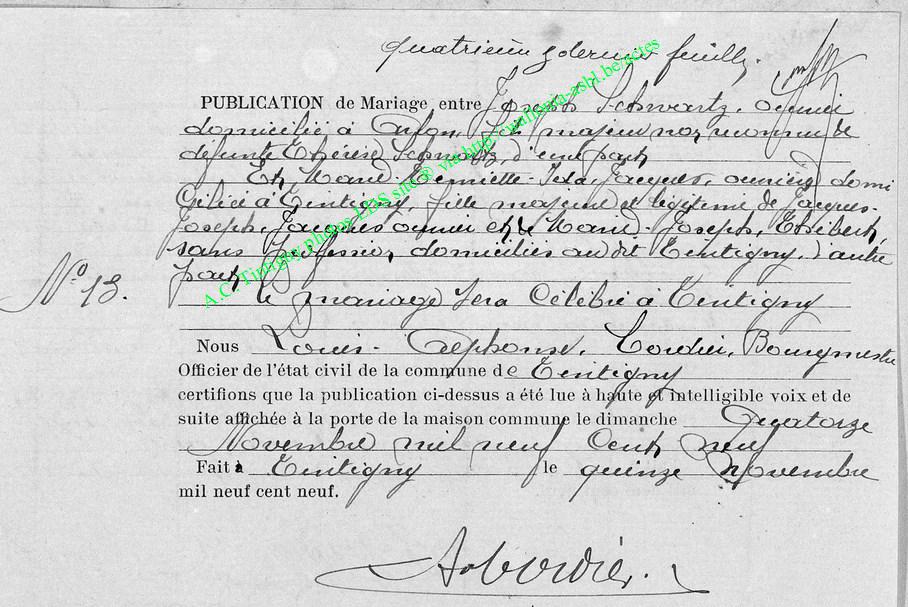 quatrième & dernier feuille.
PUBLICATION de Mariage, entre Joseph Schwartz, ouvrier
domicilié à Arlon, fils majeur non reconnu de
défunte Thérèse Schwartz, d'une part
Et Marie-Henriette-Ida, Jacques, ouvrière domi
ciliée à Tintigny, fille majeure et légitime de Jacques-
Joseph, Jacques ouvrier et de Marie-Joseph, Thibert,
sans profession, domiciliés au dit Tintigny, d'autre
part
N° 13.
le mariage sera célébré à Tintigny
Nous Louis-Alphonse, Cordier, Bourgmestre
Officier de l'état civil de la commune de Tintigny
certifions que la publication ci-dessus a été lue à haute et intelligible voix et de
suite affichée à la porte de la maison commune le dimanche Quatorze
Novembre mil neuf cent neuf
Fait à Tintigny le quinze Novembre
mil neuf cent neuf.
A. Cordier.
A.C. Tintigny photos LDS site@ via luxemburgensia-asbl.be/actes